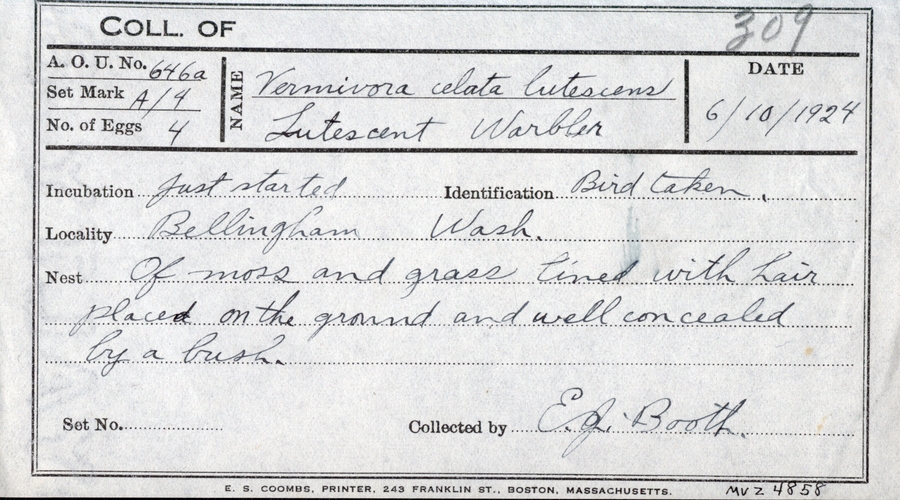 COLL. OF 309
A. O. U. No. 646a
Set Mark A/4
No. of Eggs 4
NAME
Vermivora celata lutescens
Lutescent Warbler
DATE
6/10/1924
Incubation just started Identification Bird taken.
Locality Bellingham Wash.
Nest Of moss and grass lined with hair
placed on the ground and well concealed
by a bush.
Set No. Collected by E. J. Booth.
E. S. COOMBS, PRINTER, 243 FRANKLIN ST., BOSTON, MASSACHUSETTS.
MVZ 4858